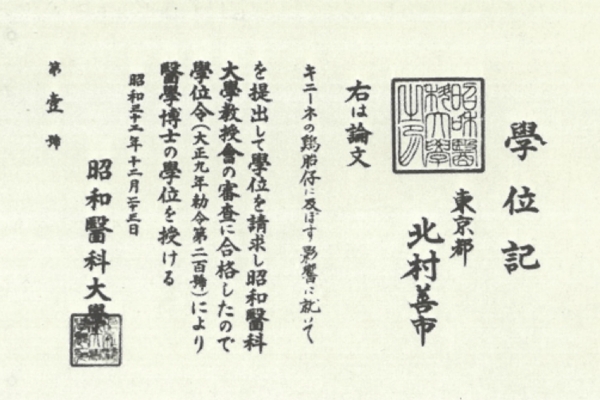 學位記
東京都
北村善市
右は論文
キニーネの鶏胎仔に及ぼす影響に就いて
を提出して學位を請求し昭和醫科
大學教授會の審査に合格したので
學位令(大正九年勅令第二百號)により
醫學博士の學位を授ける
昭和三十二年十二月二十三日
昭和醫科大學
第壹號
昭和醫科大學之印